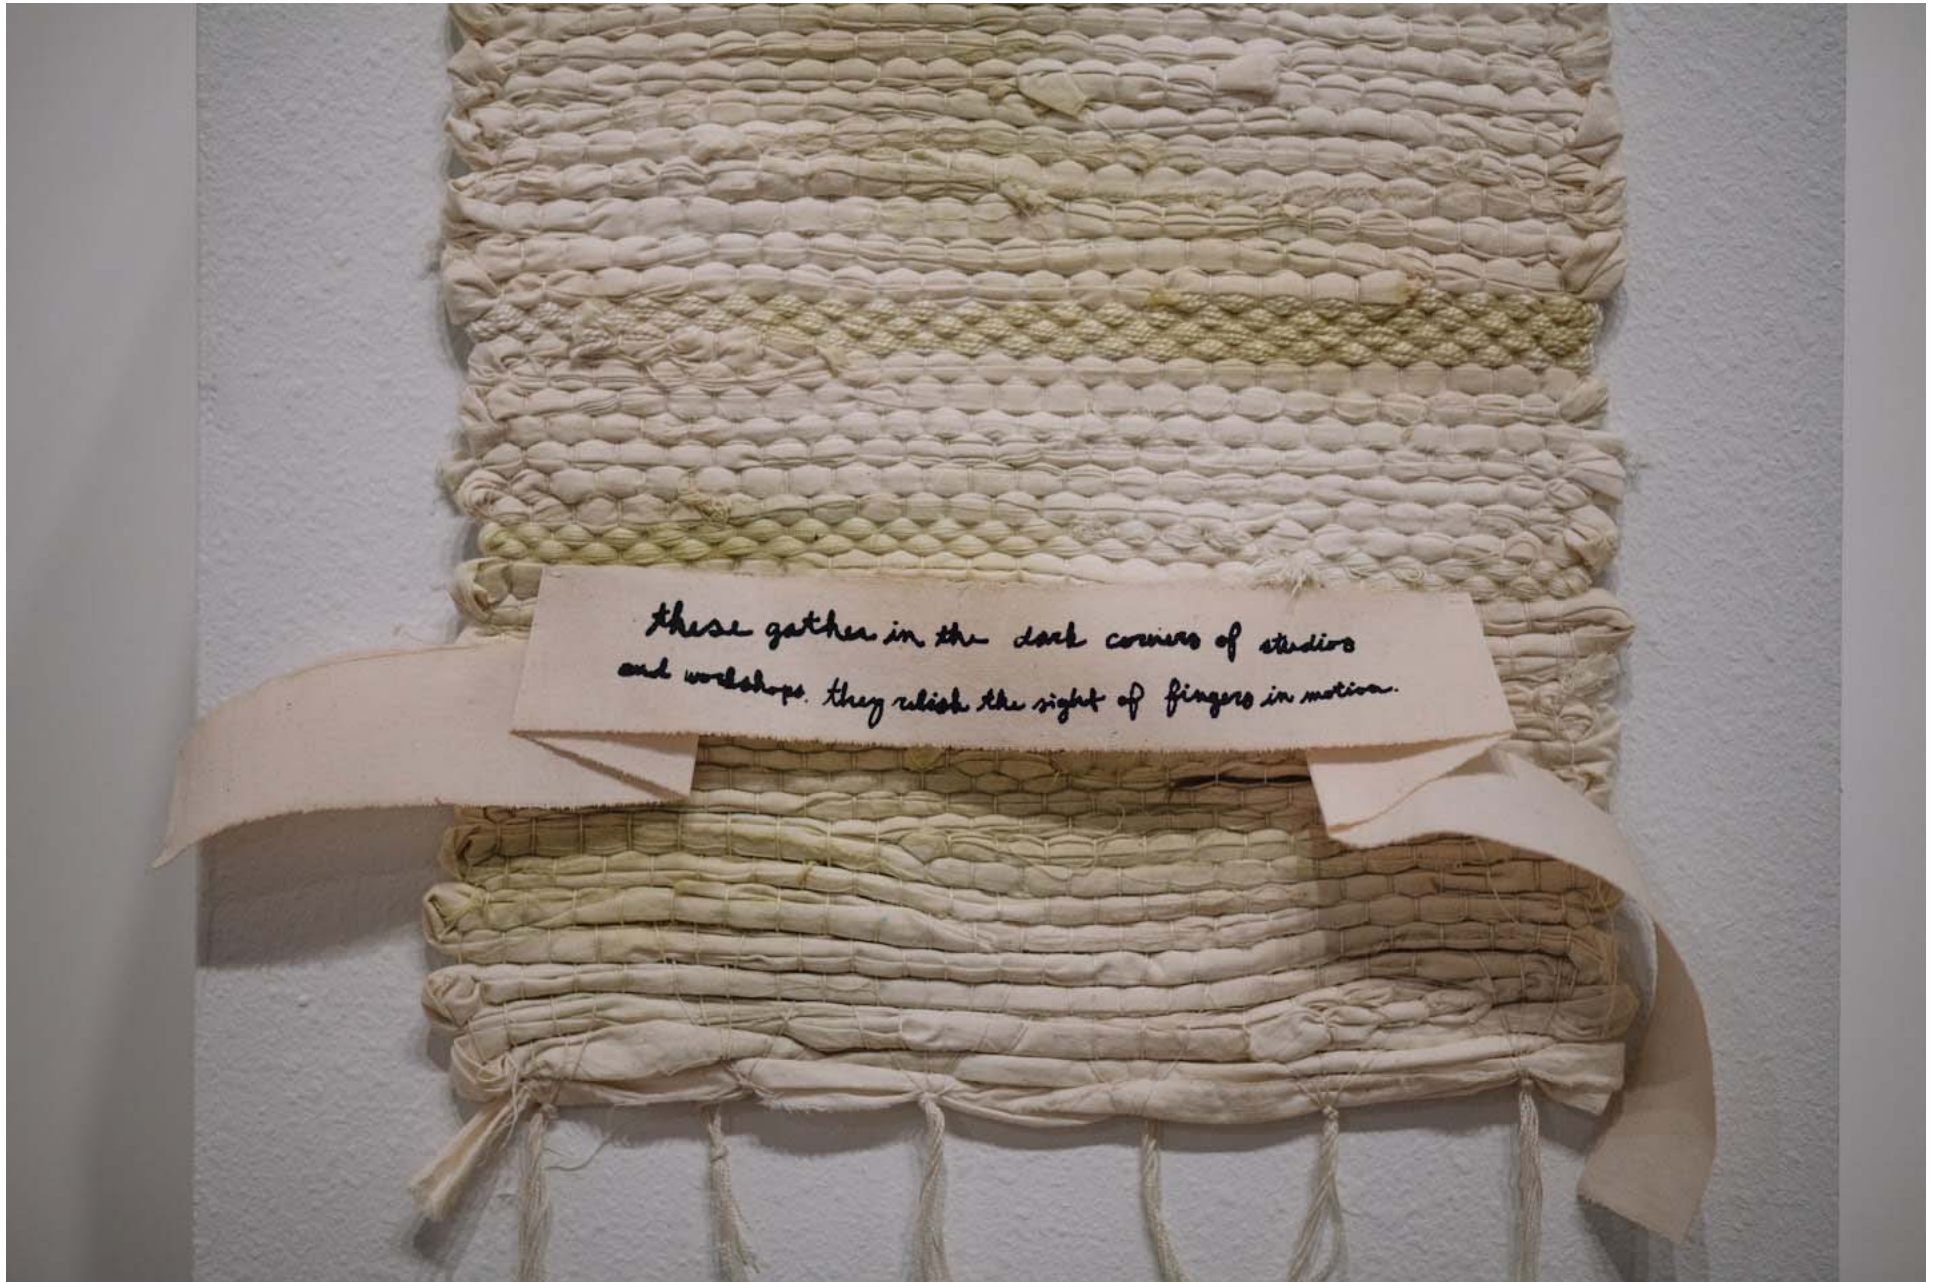 these gather in the dark corners of studios
and workshops. they relish the sight of fingers in motion.